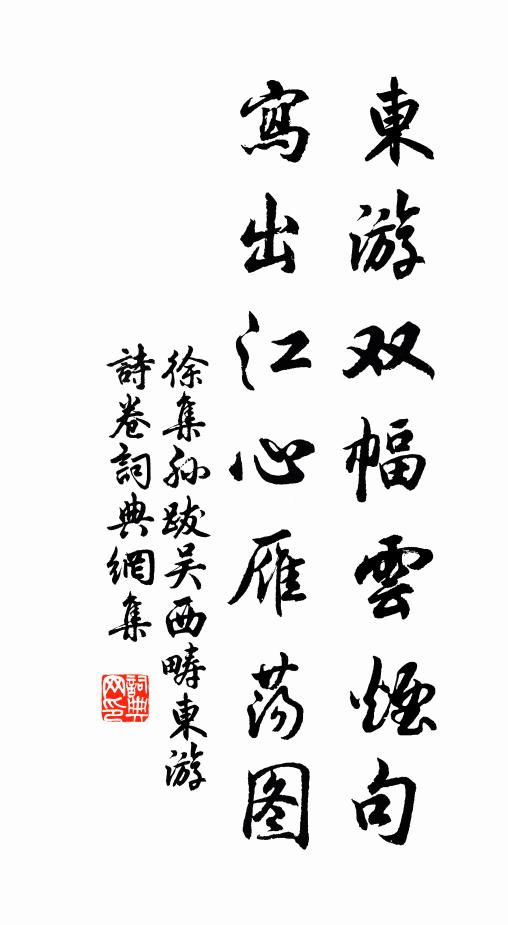 東游双幅雲煙句
寫出江心雁荡图
徐集孙跋吴西畴東游
詩卷詞典網集
詞典
网印